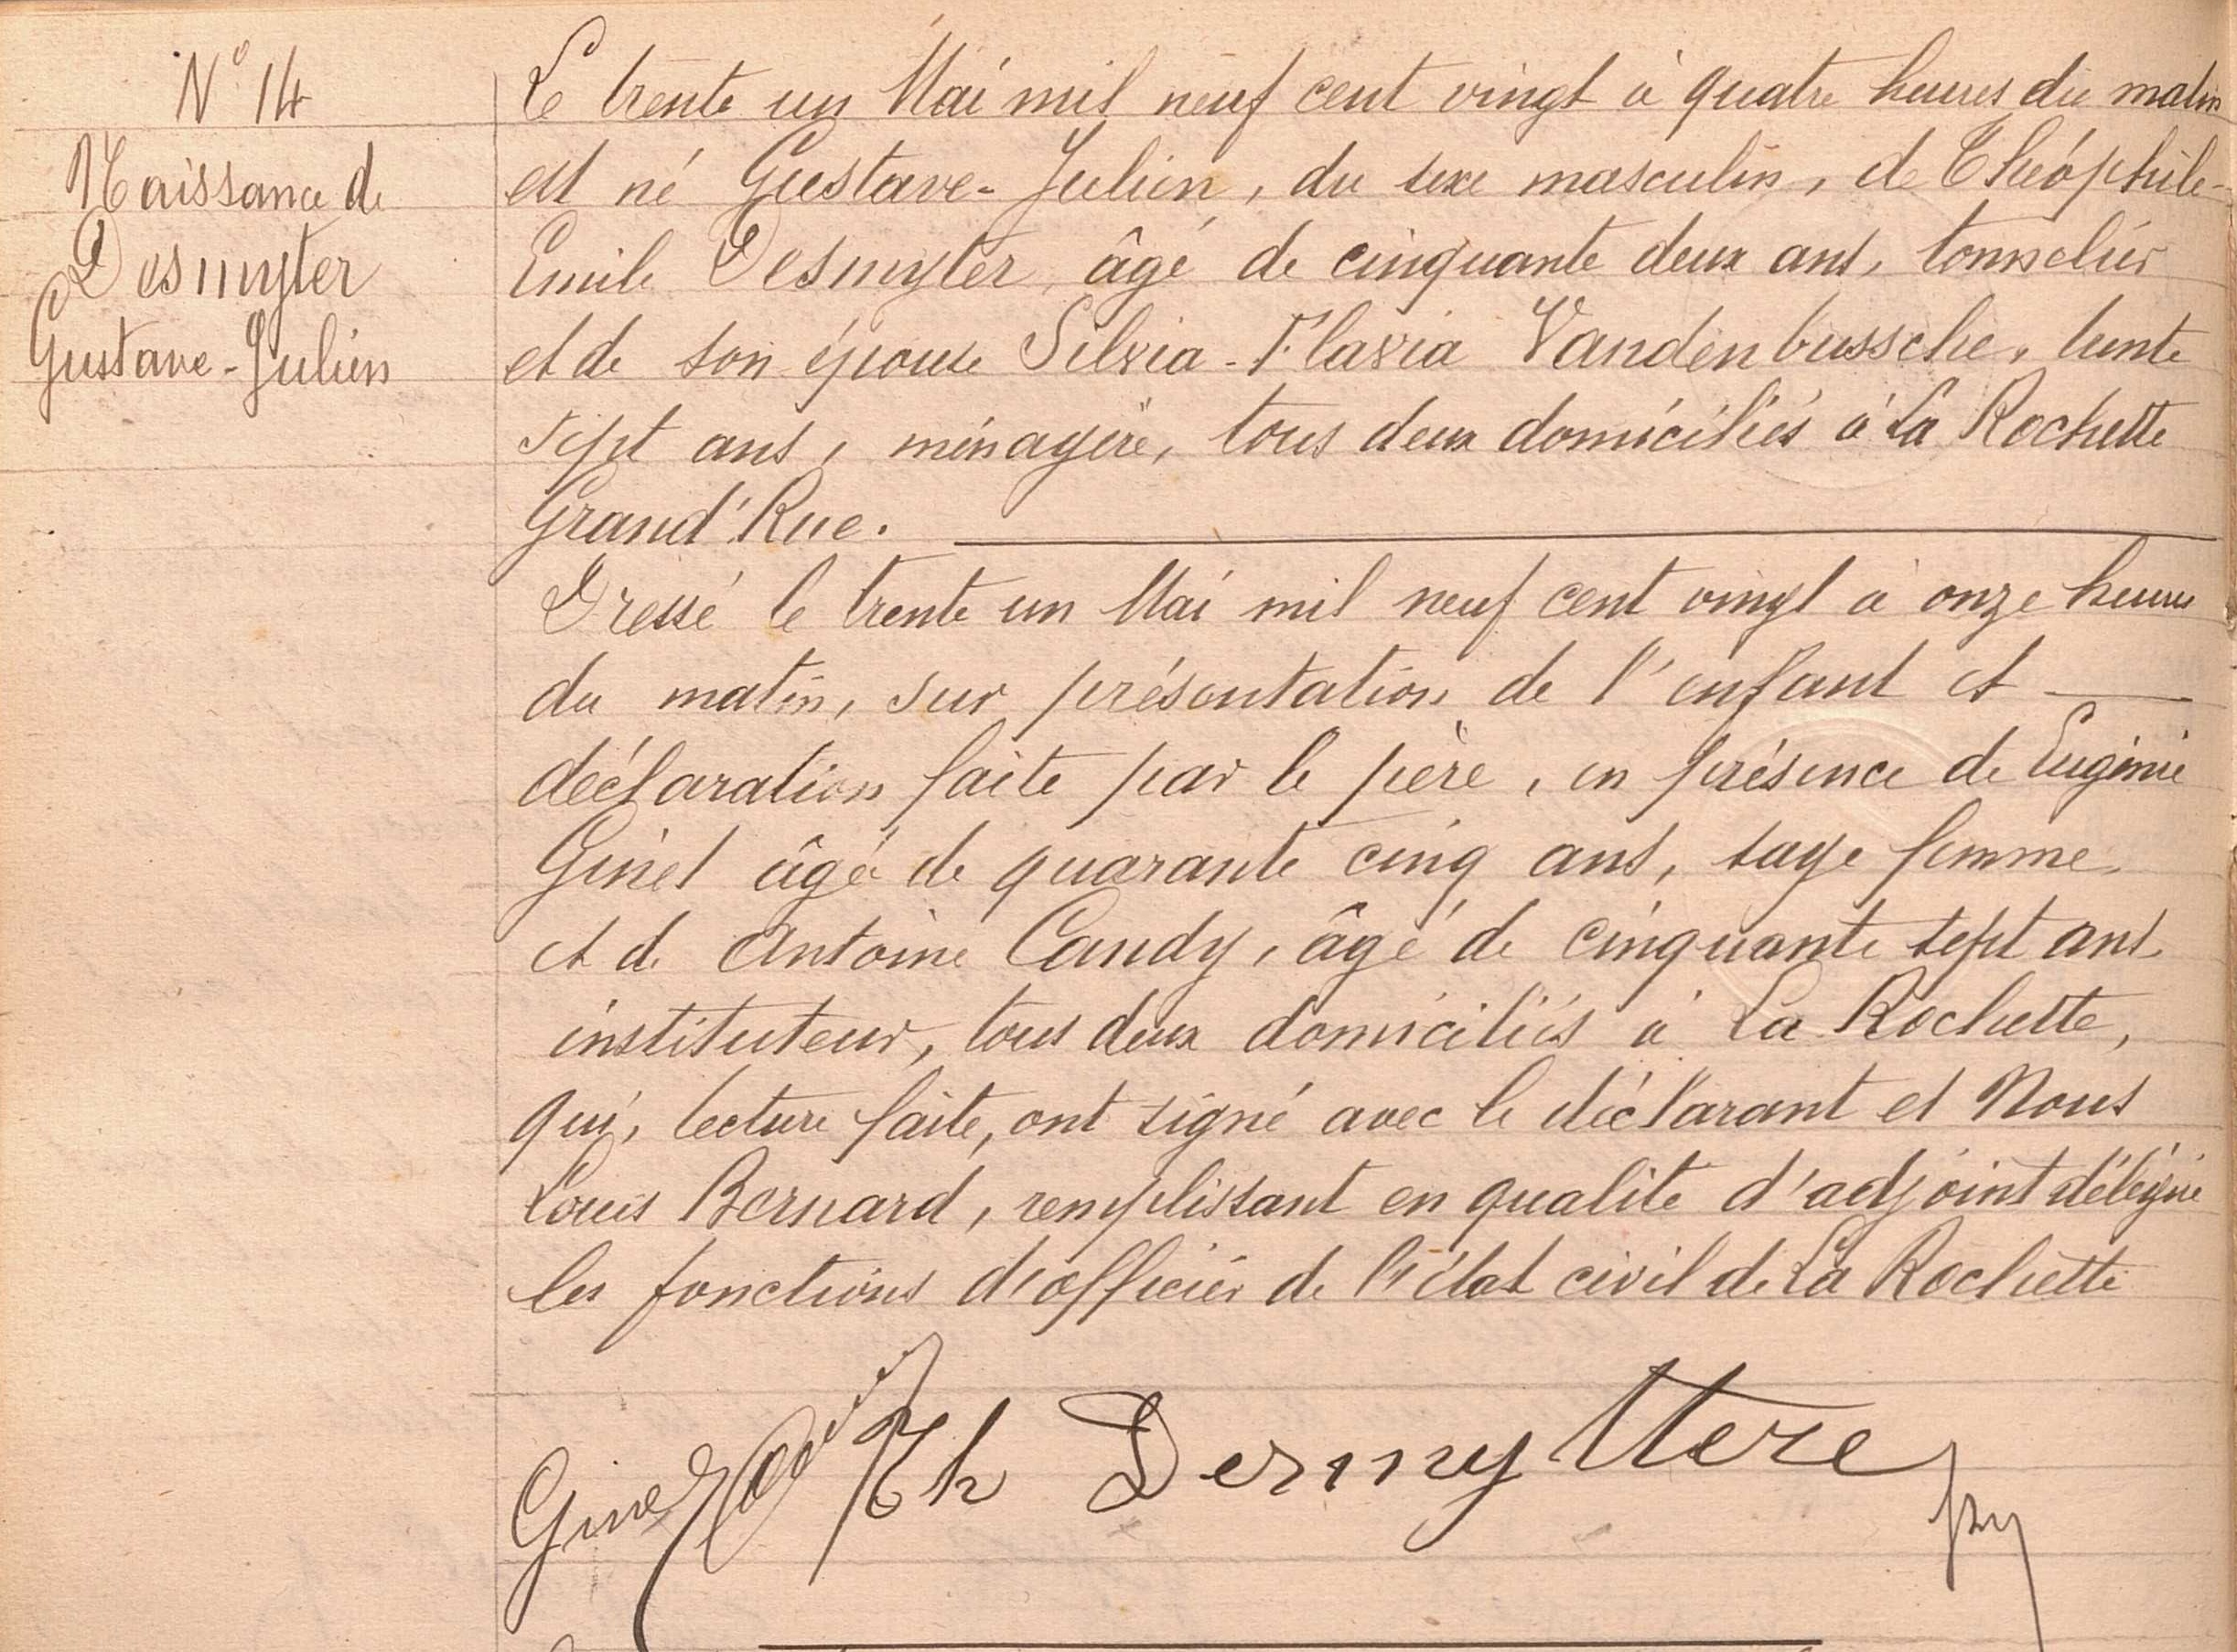 N° 14
Naissance de
Desmyter
Gustave-Julien
Le trente un Mai mil neuf cent vingt à quatre heures du matin
est né Gustave-Julien, du sexe masculin, de Théophile-
Emile Desmyter, âgé de cinquante deux ans, tonnelier
et de son épouse Silvia-Flavia Vandenbussche, trente
sept ans, ménagère, tous deux domiciliés à La Rochette
Grand'Rue.
Dressé le trente un Mai mil neuf cent vingt à onze heures
du matin, sur présentation de l'enfant et
déclaration faite par le père, en présence de Eugénie
Ginet âgé de quarante cinq ans, sage femme,
et de Antoine Candy, âgé de cinquante sept ans
instituteur, tous deux domiciliés à La Rochette,
qui, lecture faite, ont signé avec le déclarant et Nous
Louis Bernard, remplissant en qualité d'adjoint délégué
les fonctions d'officier de l'état civil de La Rochette
Ginet Th Desmyttere